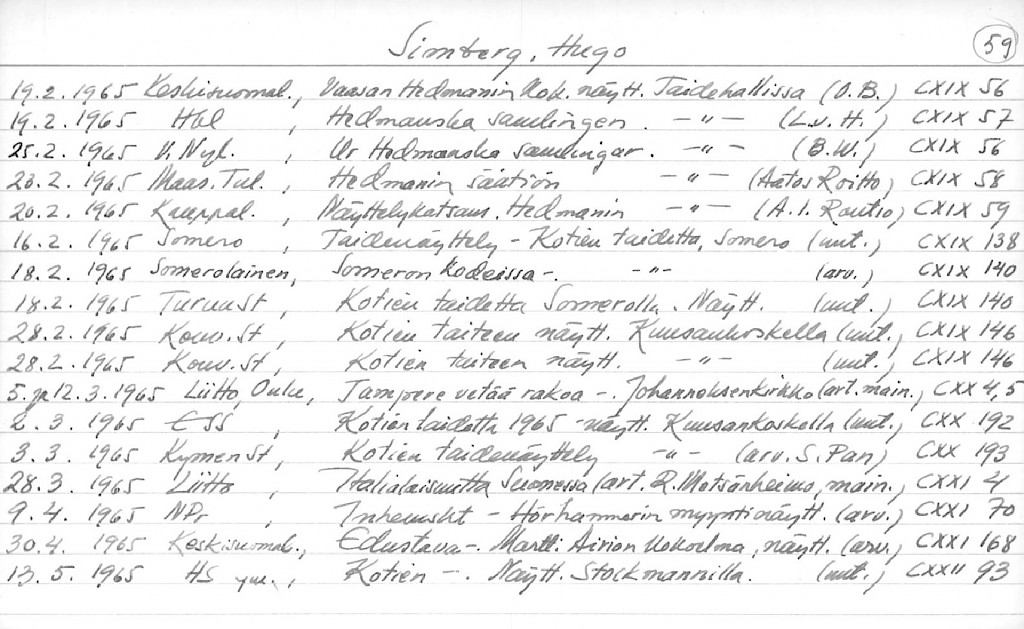 Simberg, Hugo
59
19.2.1965 Keskisuomal., Vaasan Hedmanin kok. näytt. Taidehallissa (O.B.) CXIX 56
19.2.1965 Hbl , Hedmanska samlingen. — " — (L.v.H.) CXIX 57
25.2.1965 U.Nyl. , Ur Hedmanska samlingar. — " — (B.W.) CXIX 56
23.2.1965 Maas.Tul. , Hedmanin säätiön — " — (Aatos Roitto) CXIX 58
20.2.1965 Kauppal. , Näyttelykatsaus. Hedmanin — " — (A.I. Routio) CXIX 59
16.2.1965 Somero , Taidenäyttely - Kotien taidetta, Somero (uut.) CXIX 138
18.2.1965 Somerolainen, Someron kodeissa -. — " — (arv.) CXIX 140
18.2.1965 TurunSt , Kotien taidetta Somerolla. Näytt. (uut.) CXIX 140
28.2.1965 Kouv.St , Kotien taiteen näytt. Kuusankoskella (uut.) CXIX 146
28.2.1965 Kouv.St , Kotien taiteen näytt. — " — (uut.) CXIX 146
5. ja 12.3.1965 Liitto, Oulu, Tampere vetää rakoa -. Johanneksenkirkko (art. main.) CXX 4,5
2.3.1965 ESS , Kotien taidetta 1965 -näytt. Kuusankoskella (uut.) CXX 192
3.3.1965 KymenSt , Kotien taidenäyttely — " — (arv. S.Pan) CXX 193
28.3.1965 Liitto , Italialaisuutta Suomessa (art. R. Metsänheimo, main.) CXXI 4
9.4.1965 NPr , Inhemskt - Hörhammerin myyntinäytt. (arv.) CXXI 70
30.4.1965 Keskisuomal., Edustava -. Martti Airion kokoelma, näytt. (arv.) CXXI 168
13.5.1965 HS ym., Kotien -. Näytt. Stockmannilla. (uut.) CXXII 93